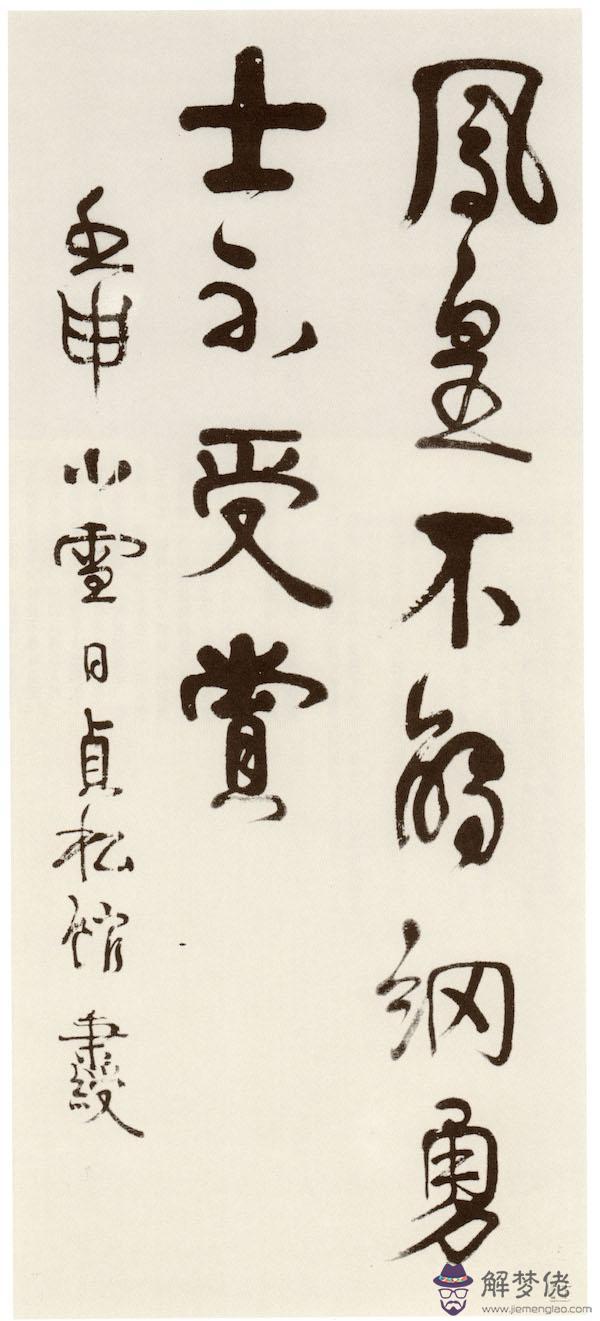 鳳皇不網勇
士不受賞
壬申小雪日貞松館秉綬
解梦佬
www.jiemenglao.com